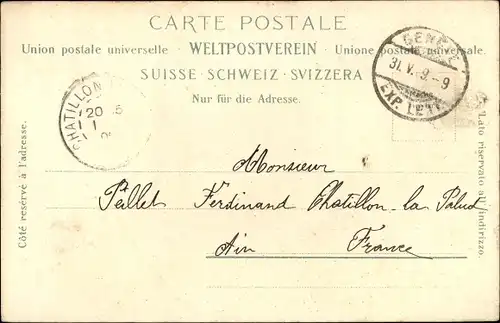 CARTE POSTALE
Union postale universelle · WELTPOSTVEREIN · Unione postale universale.
SUISSE · SCHWEIZ · SVIZZERA
Nur für die Adresse.
EXP. LETT.
31. V. 9 - 9
CHATILLON
20
1
Côté reservé à l'adresse.
Lato riservato all'indirizzo.
Monsieur
Pellet Ferdinand Chatillon-la Palud
Ain France